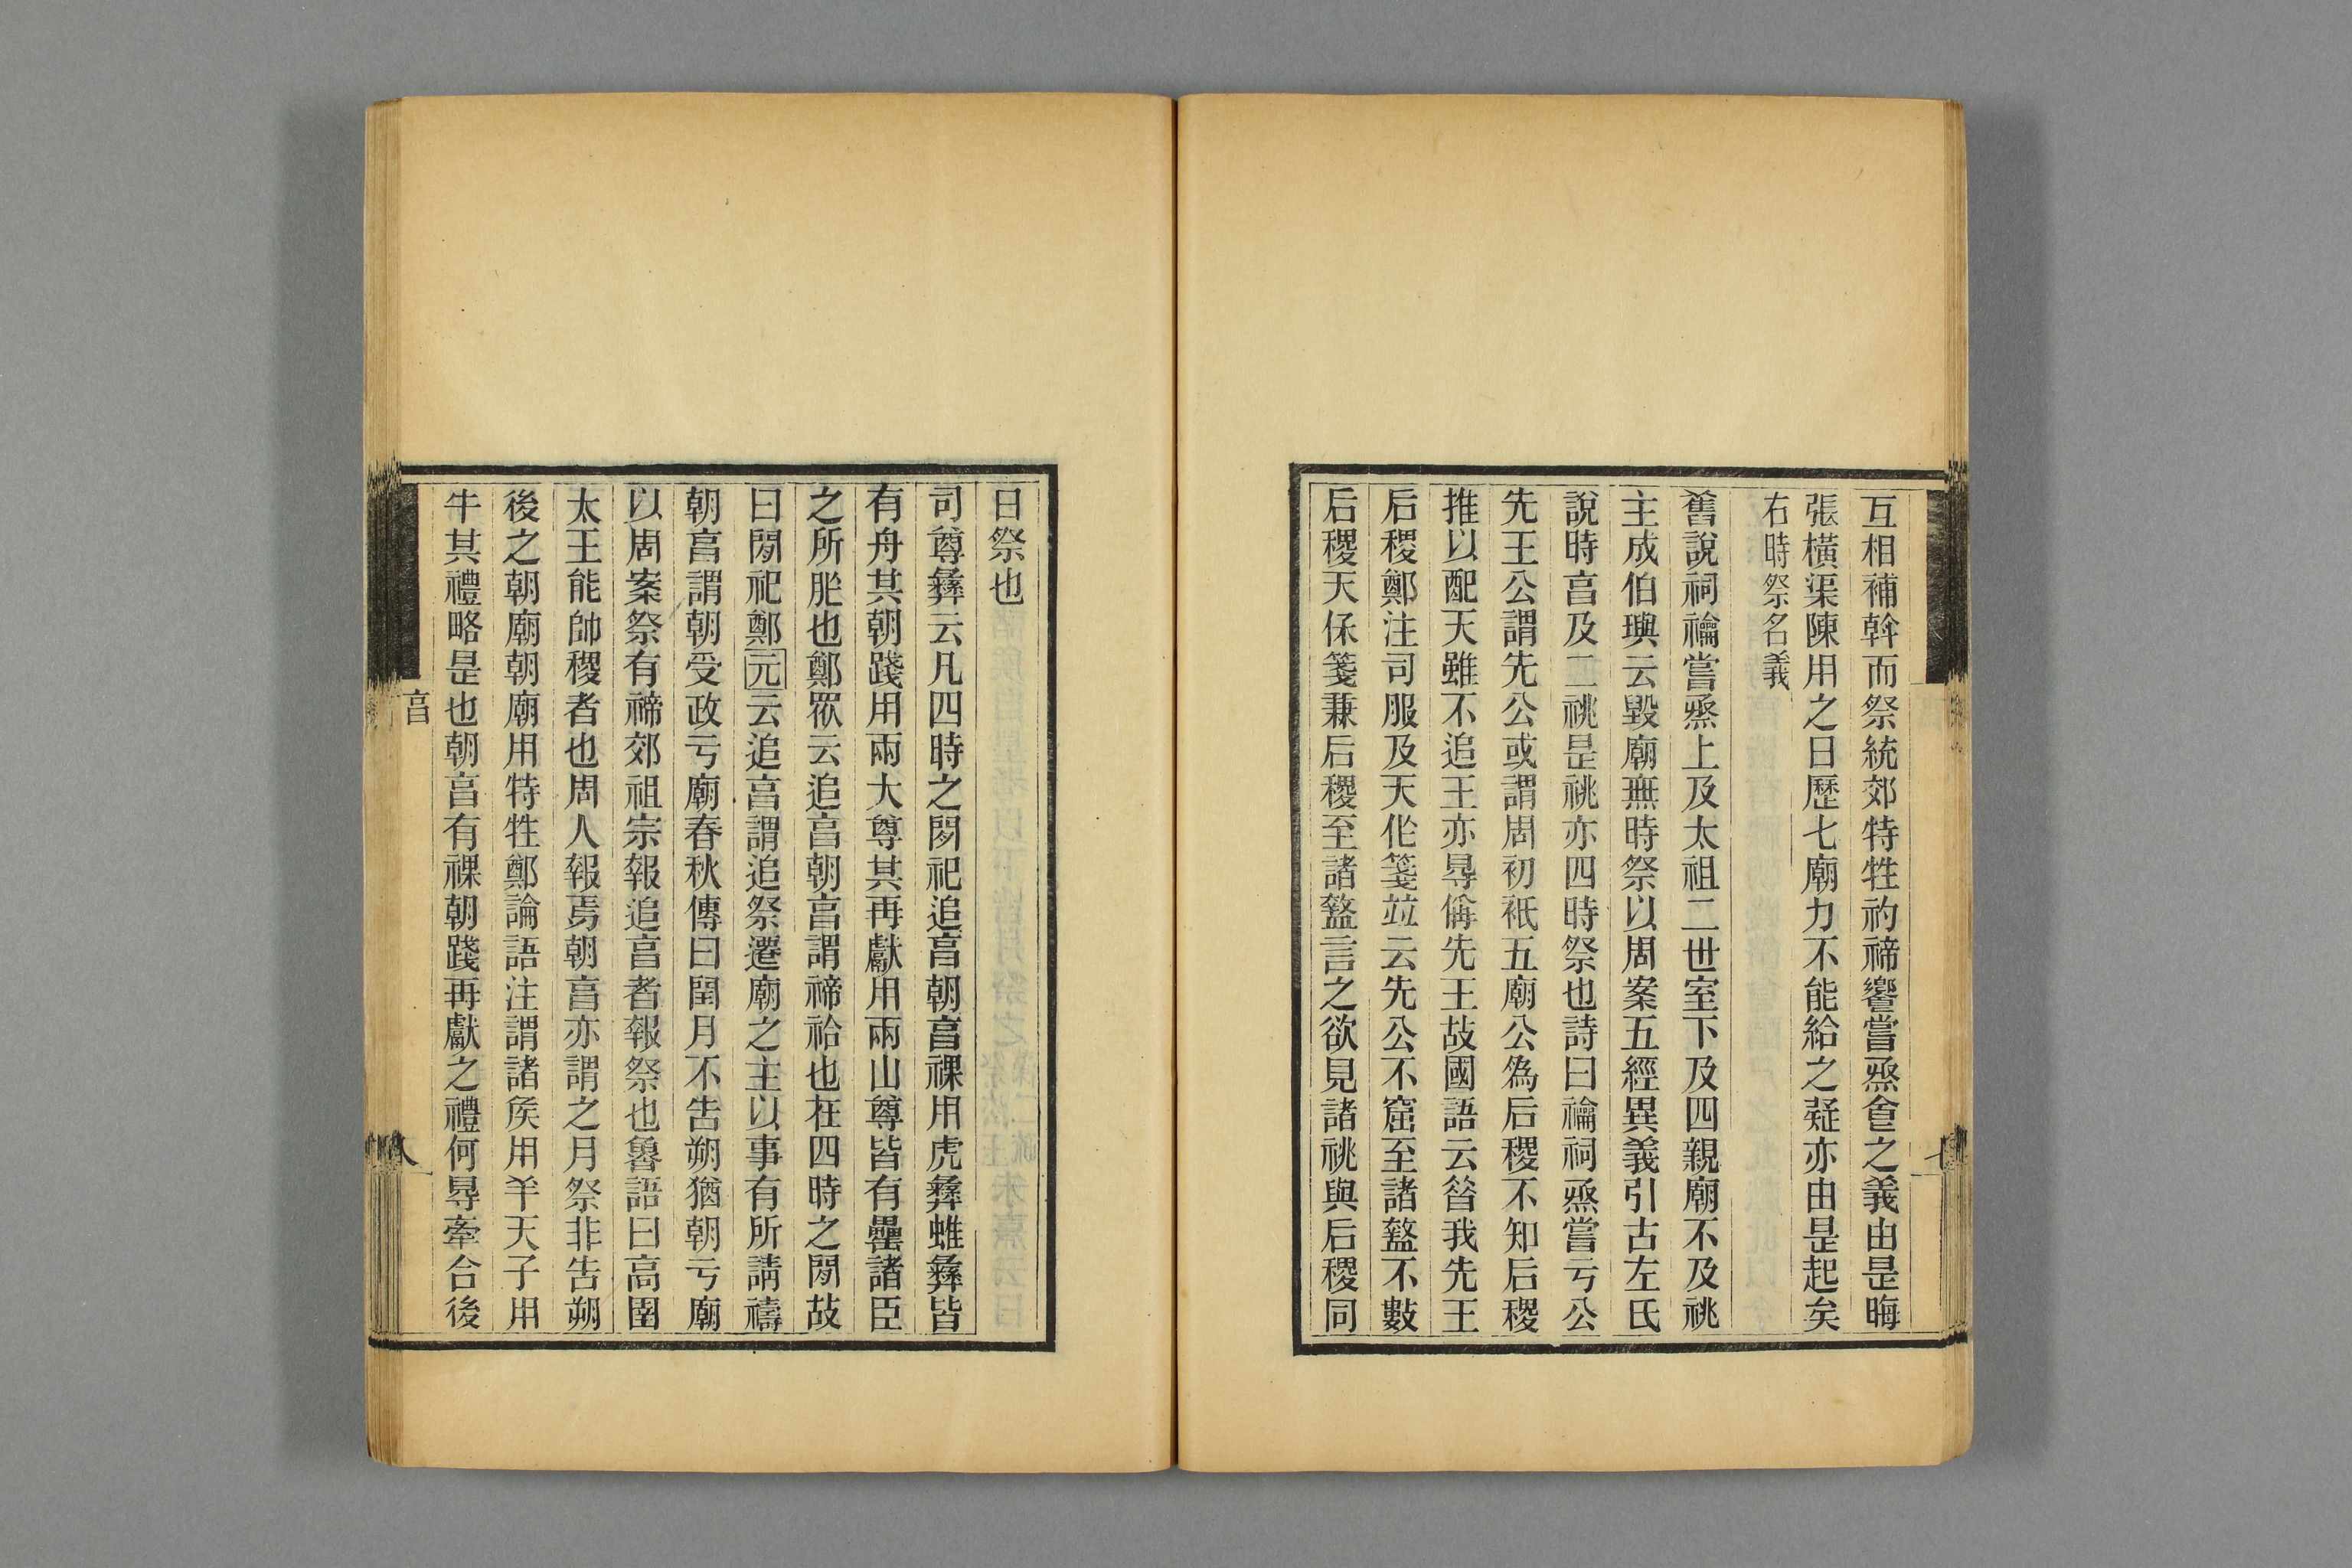 互相補斡而祭統郊特牲礿禘饗嘗烝㑹之義由是晦
張橫渠陳用之日歷七廟力不能給之疑亦由是起矣
右時祭名義
舊說祠禴嘗烝上及太祖二世室下及四親廟不及祧
主成伯璵云毀廟無時祭以周案五經異義引古左氏
說時亯及二祧是祧亦四時祭也詩曰禴祠烝嘗亏公
先王公謂先公或謂周初祇五廟公為后稷不知后稷
推以配天雖不追王亦㝵偁先王故國語云昝我先王
后稷鄭注司服及天作箋竝云先公不窋至諸盩不數
后稷天保箋兼后稷至諸盩言之欲見諸祧與后稷同
日祭也
司尊彝云凡四時之閒祀追亯朝亯祼用虎彝蜼彝皆
有舟其朝踐用兩大尊其再獻用兩山尊皆有罍諸臣
之所胙也鄭眾云追亯朝亯謂禘祫也在四時之閒故
曰閒祀鄭元云追亯謂追祭遷廟之主以事有所請禱
朝亯謂朝受政亏廟春秋傳曰閏月不告朔猶朝亏廟
以周案祭有禘郊祖宗報追亯者報祭也魯語曰高圉
太王能帥稷者也周人報焉朝亯亦謂之月祭非告朔
後之朝廟朝廟用特牲鄭論語注謂諸矦用羊天子用
牛其禮略是也朝亯有祼朝踐再獻之禮何㝵牽合後
亯
八
七